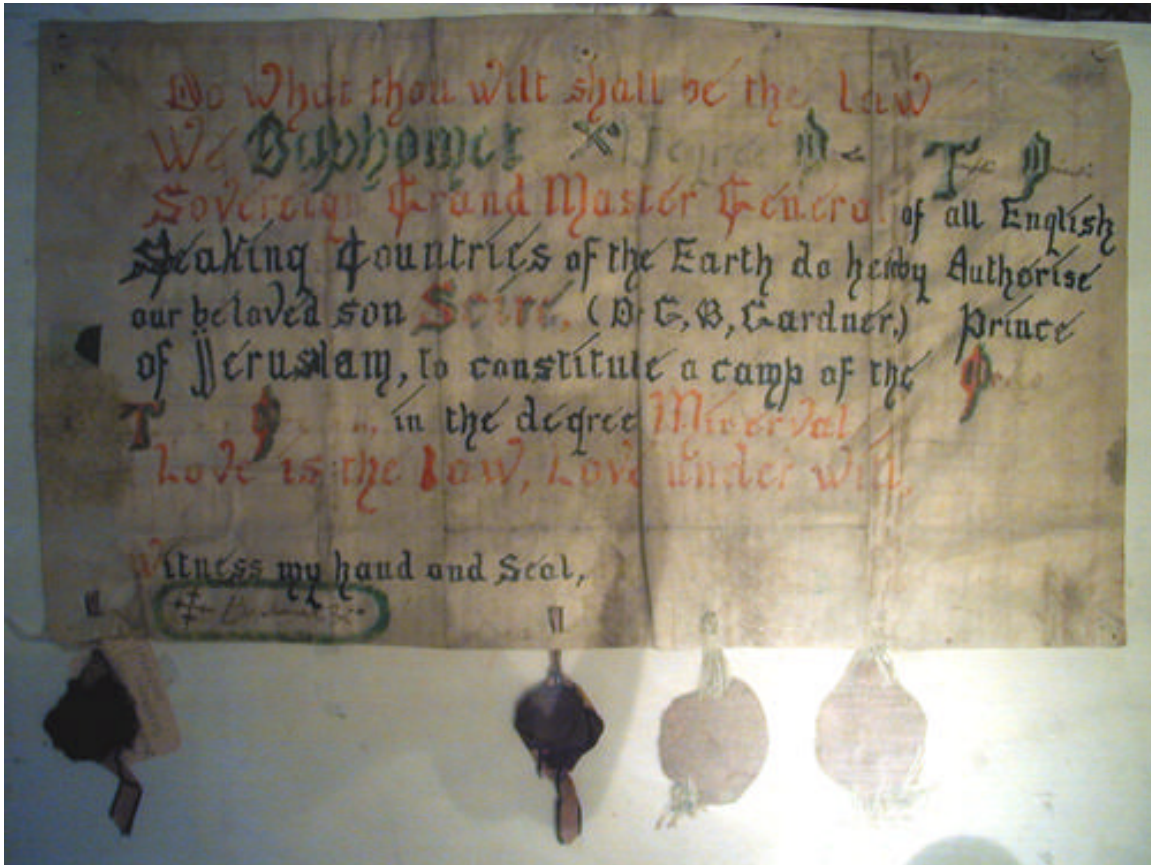 Do what thou wilt shall be the law
We Baphomet X° Degree O T O
Sovereign Grand Master General of all English
Speaking Countries of the Earth do hereby Authorise
our beloved son Scire, (Dr G,B,Gardner,) Prince
of Jeruslam, to constitute a camp of the Ordo
T O in the degree Minerval
Love is the law, Love under will,
Witness my hand and Seal,